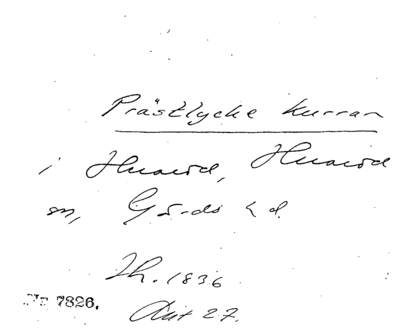 Prästlycke kurran
i Huaröd, Huaröd
sn, Gärds hd.
Th. 1836
Nr 7826.
Akt 27.